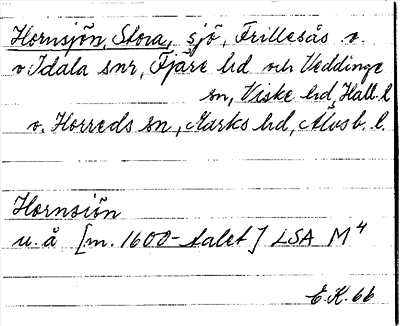 Hornsjön, Stora, sjö, Frillesås o.
o. Idala snr, Fjäre hd och Veddinge
sn, Viske hd, Hall. l
o. Horreds sn, Marks hd, Älvsb. l.
Hornsiön
u. å [m. 1600-talet] LSA M4
E.K. 66